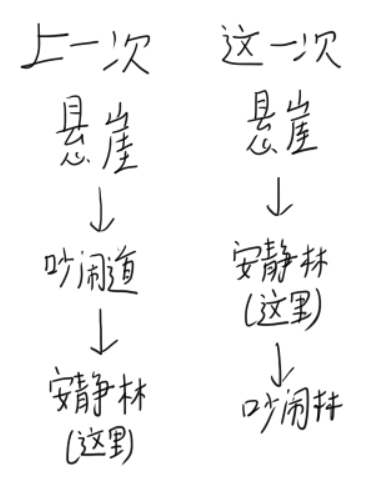 上一次
悬崖
↓
吵闹道
↓
安静林
(这里)
这一次
悬崖
↓
安静林
(这里)
↓
吵闹林